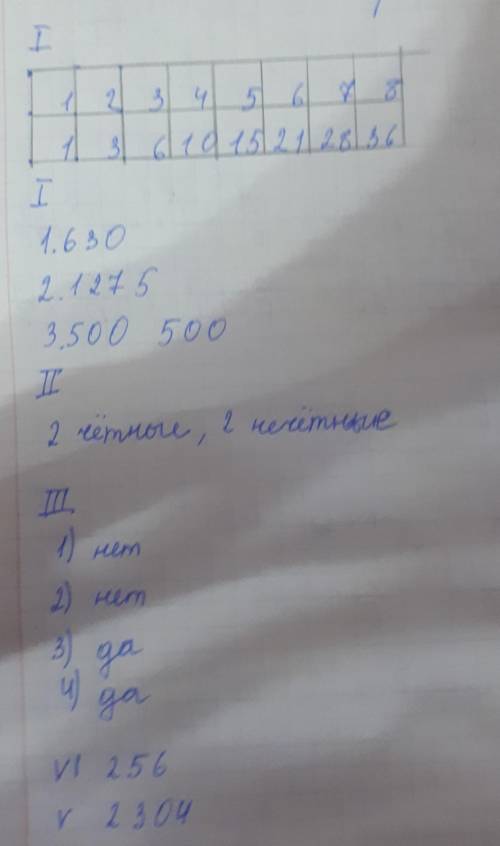 I
1 2 3 4 5 6 7 8
1 3 6 10 15 21 28 36
I
1.630
2.1275
3.500 500
II
2 чётные, 2 нечётные
III
1) нет
2) нет
3) да
4) да
VI 256
V 2304